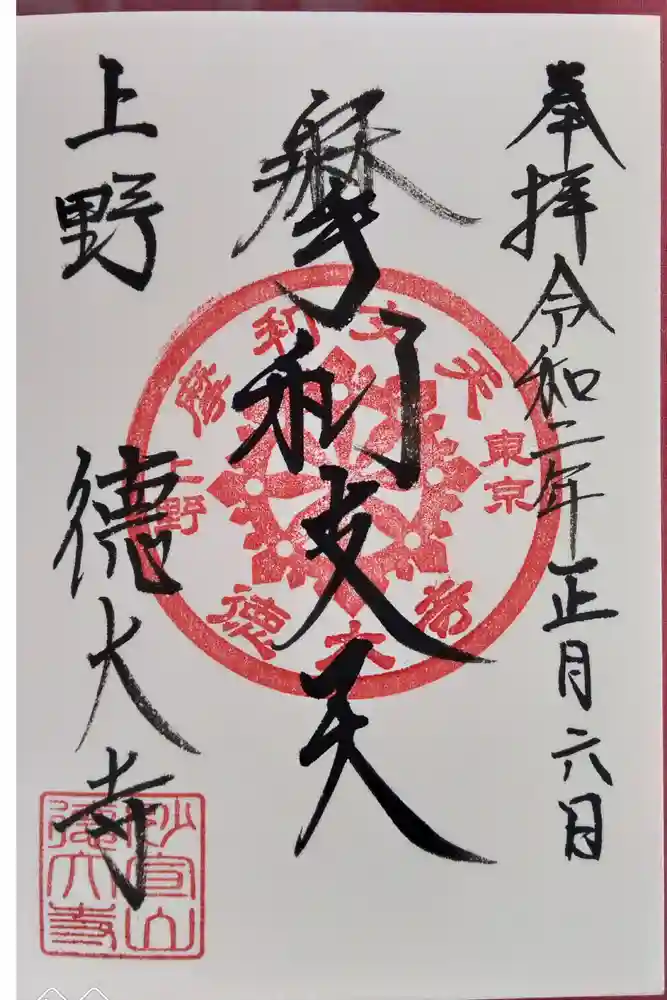 奉拝 令和二年正月六日
摩利支天
上野 徳大寺
摩利支天
東京
上野
徳大寺
妙宣山
徳大寺